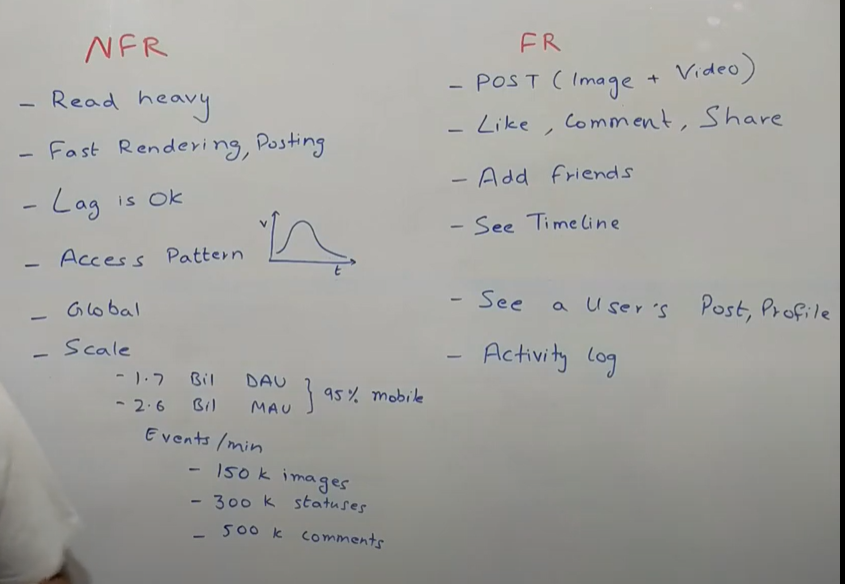 NFR
- Read heavy
- Fast Rendering, Posting
- Lag is OK
- Access Pattern
v
t
- Global
- Scale
- 1.7 Bil DAU
- 2.6 Bil MAU
} 95% mobile
Events/min
- 150 k images
- 300 k statuses
- 500 k comments
FR
- POST (Image + Video)
- Like, Comment, Share
- Add friends
- See Timeline
- See a User's Post, Profile
- Activity log